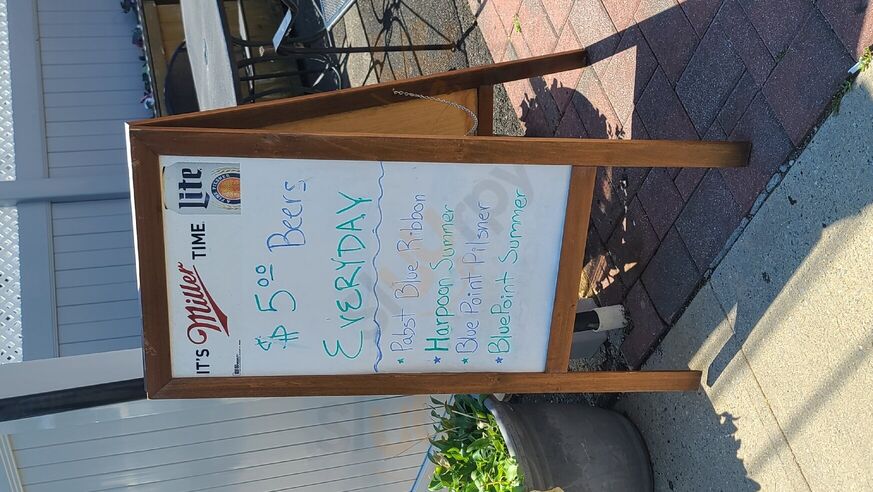 IT'S Miller TIME
Lite
$5.00 Beers
EVERYDAY
* Pabst Blue Ribbon
* Harpoon Summer
* Blue Point Pilsner
* Blue Point Summer